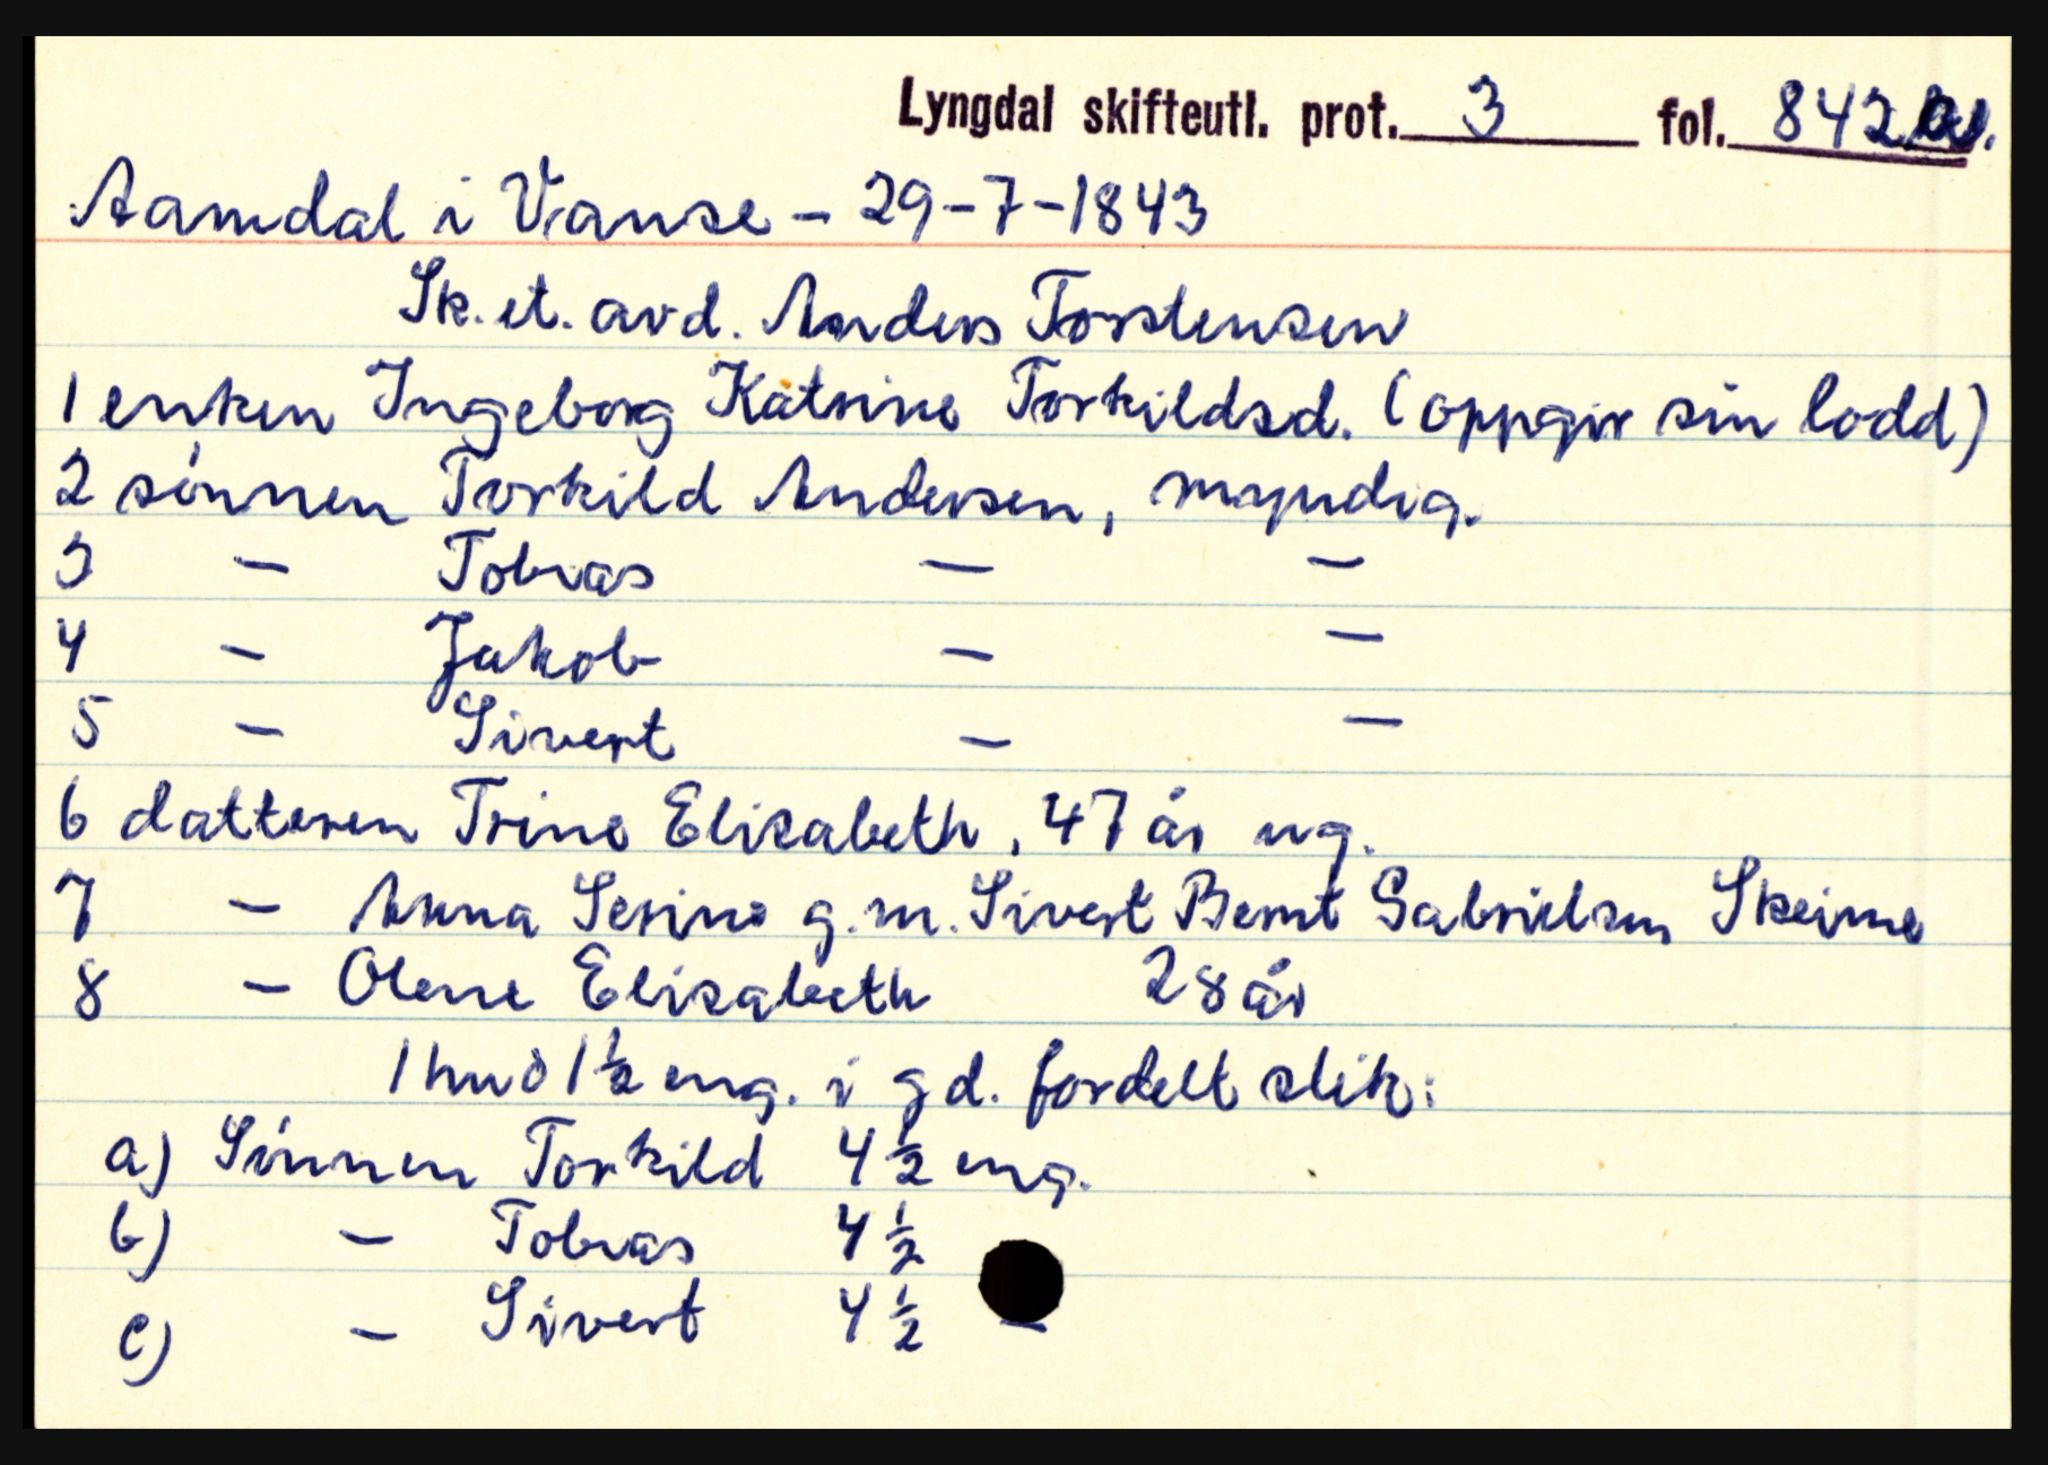 Lyngdal skifteutl. prot. 3 fol. 842
Aamdal i Vanse - 29-7-1843
Sk. et. avd. Anders Torstensen
1 enken Ingeborg Katrine Torkildsd. (oppgir sin lodd)
2 sønnen Torkild Andersen, myndig.
3 - Tobias - -
4 - Jakob - -
5 - Sivert - -
6 datteren Trine Elisabeth, 47 år ug.
7 - Anna Serine g.m. Sivert Bernt Gabrielsen Skeime
8 - Olene Elisabeth 28 år
1 hud 1½ eng. i gd. fordelt slik:
a) Sønnen Torkild 4½ eng.
b) - Tobias 4½
c) - Sivert 4½ -